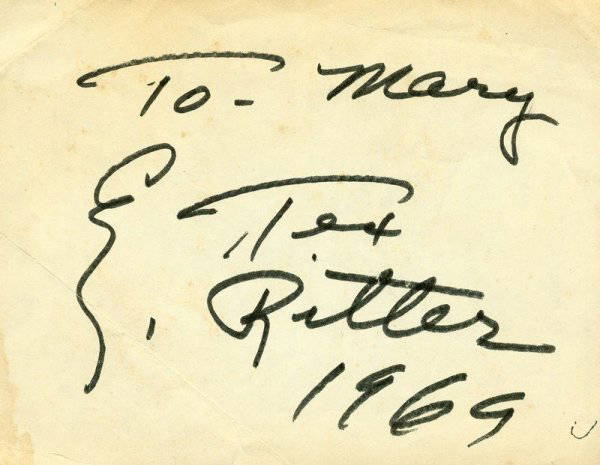 To - Mary
Tex
Ritter
1969